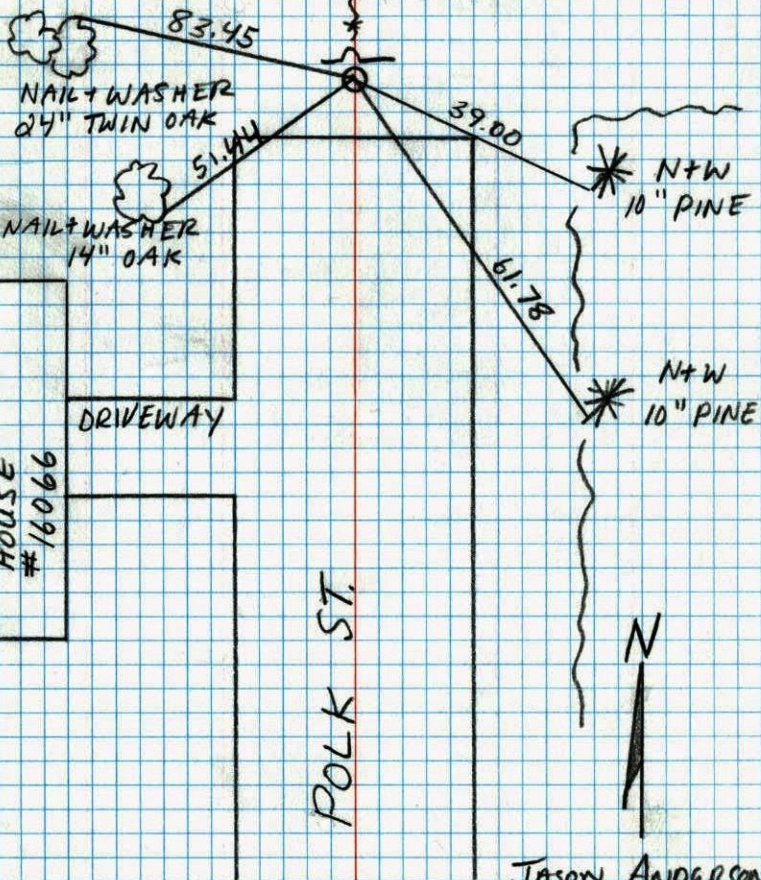 83.45
NAIL + WASHER
24" TWIN OAK
39.00
51.44
N+W
10" PINE
NAIL + WASHER
14" OAK
61.78
N+W
10" PINE
DRIVEWAY
HOUSE
#16066
POLK ST.
N
JASON ANDERSON